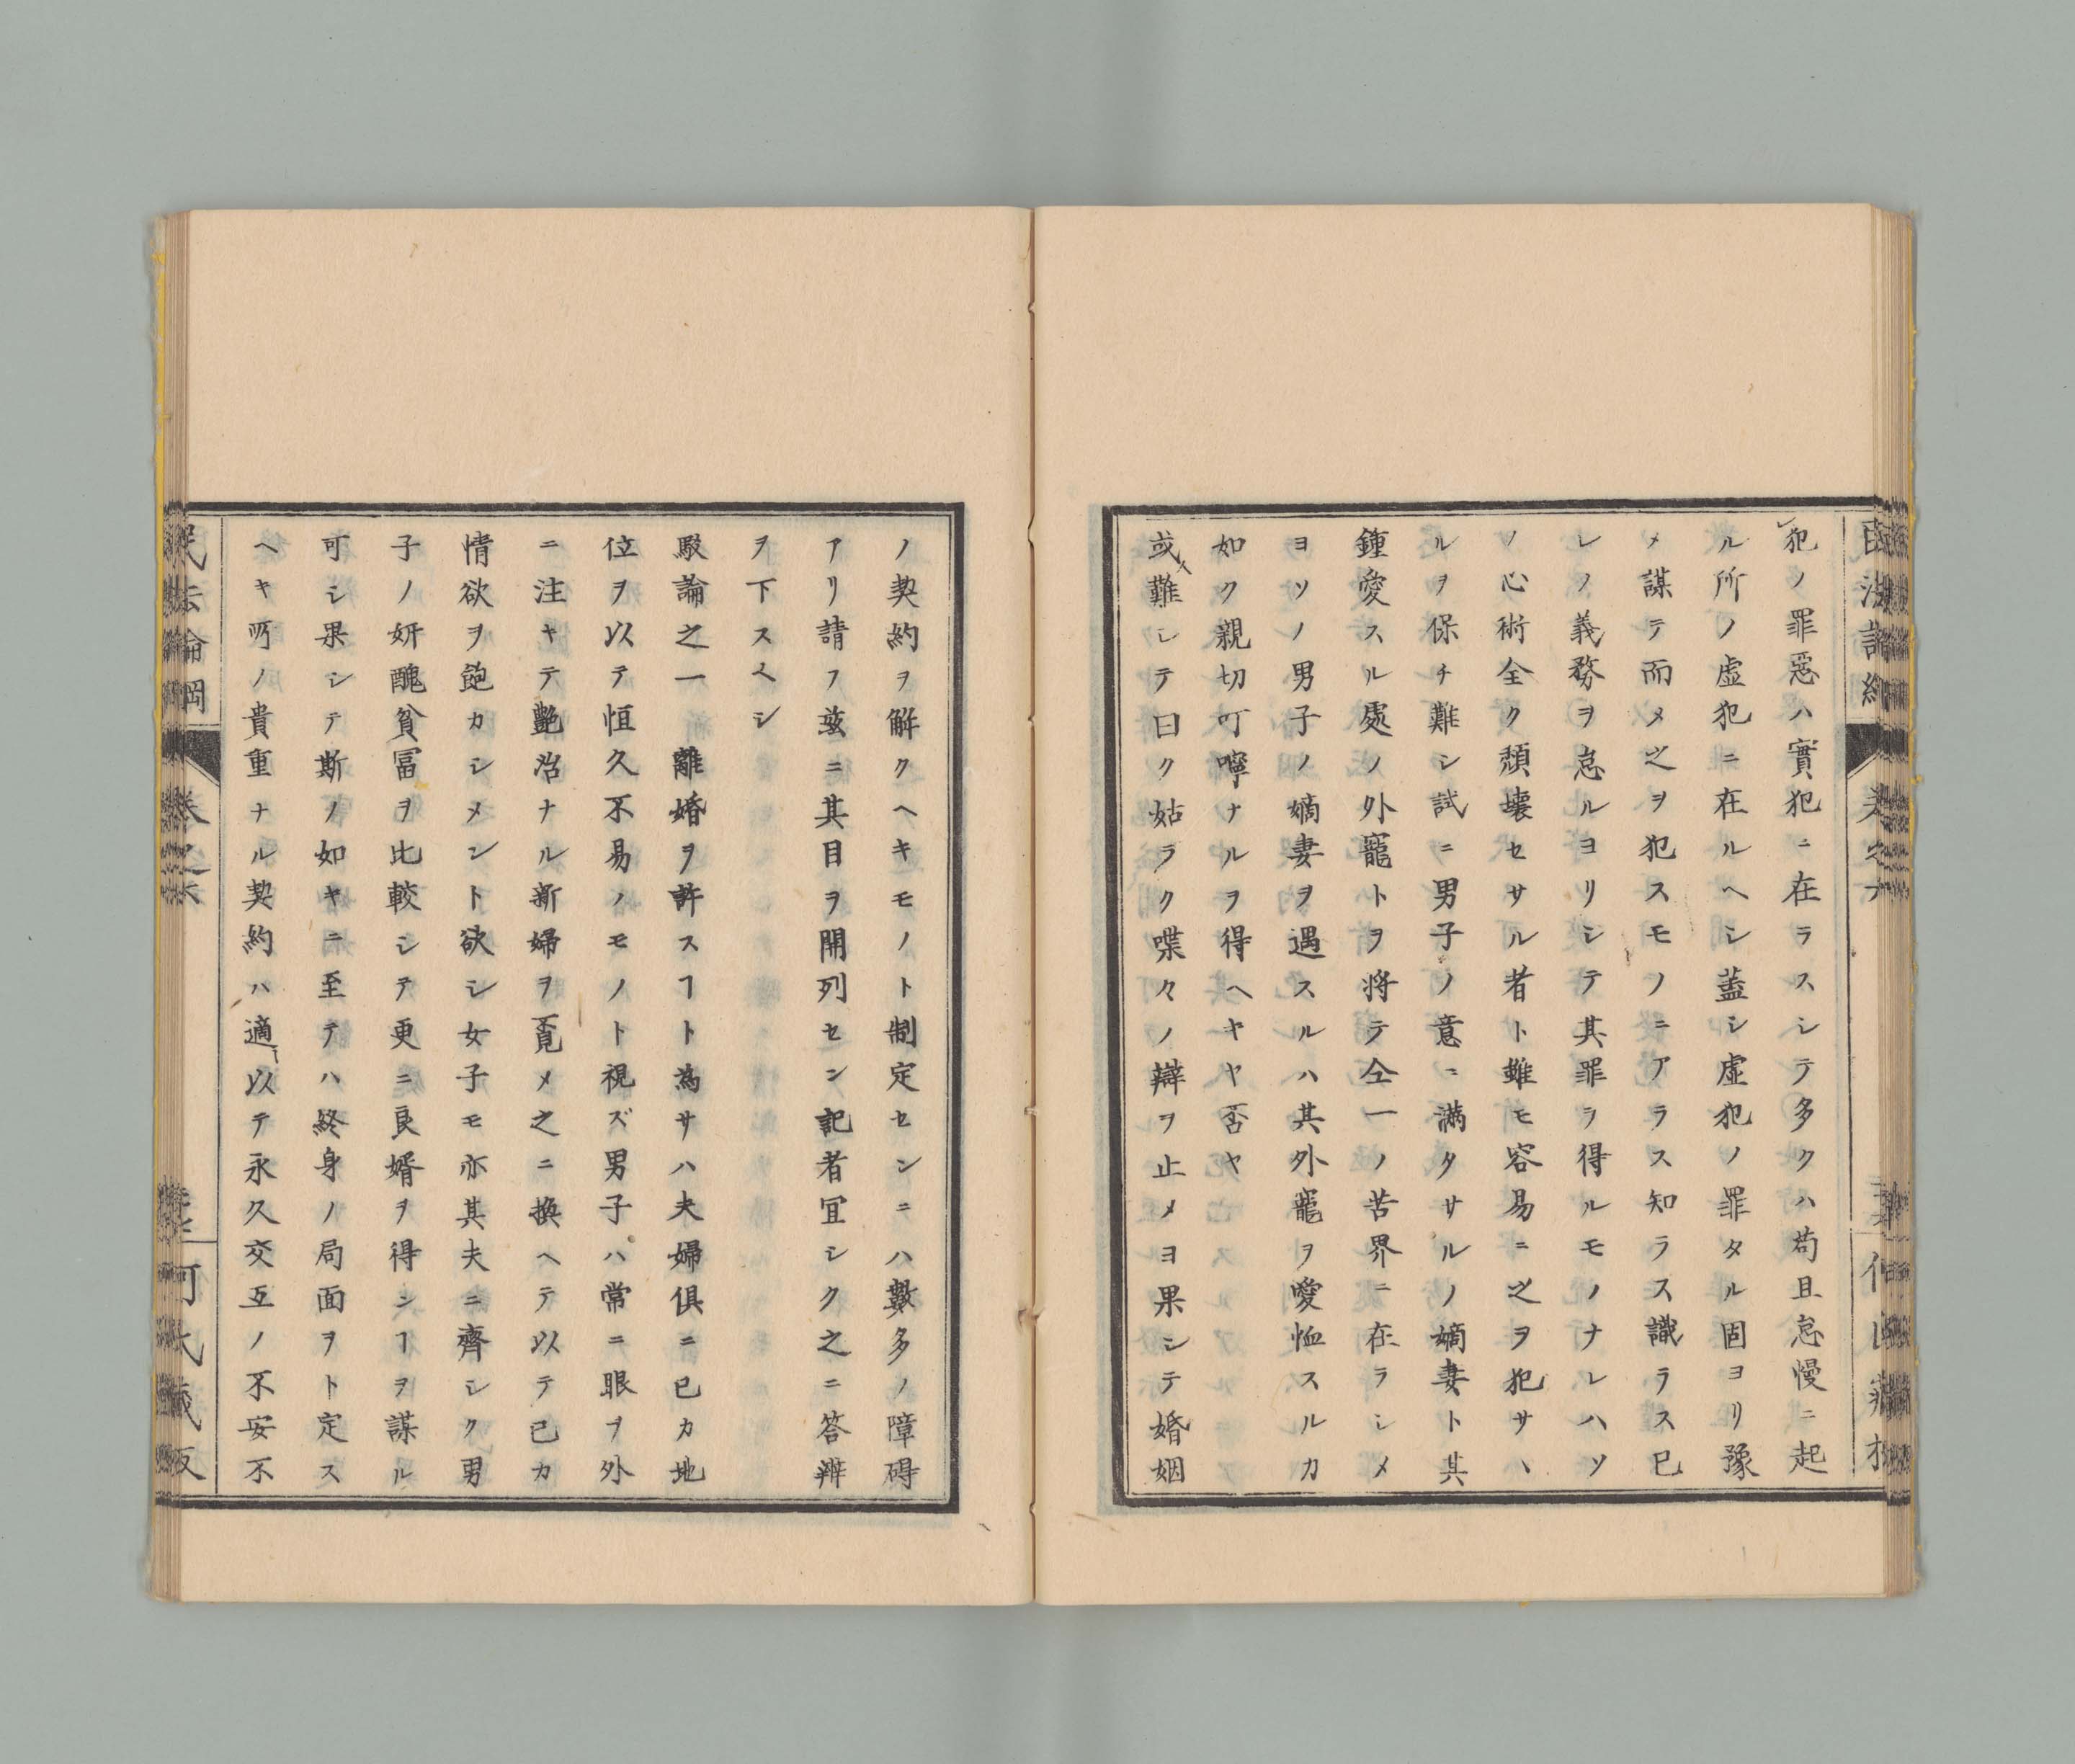 犯ノ罪惡ハ實犯ニ在ラスシテ多クハ苟且怠慢ニ起
ル所ノ虚犯ニ在ルヘシ蓋シ虚犯ノ罪タル固ヨリ豫
メ謀テ而メ之ヲ犯スモノニアラス知ラス識ラス巳
レノ義務ヲ怠ルヨリシテ其罪ヲ得ルモノナレハソ
ノ心術全ク頽壊セサル者ト雖モ容易ニ之ヲ犯サヽ
ルヲ保チ難シ試ニ男子ノ意ニ滿タサルノ嫡妻ト其
鍾愛スル處ノ外寵トヲ将テ仝一ノ苦界ニ在ラシメ
ヨソノ男子ノ嫡妻ヲ遇スルハ其外寵ヲ愛恤スルカ
如ク親切叮嚀ナルヲ得ヘキヤ否ヤ
或難シテ曰ク姑ラク喋々ノ辯ヲ止メヨ果シテ婚姻
ノ契約ヲ解クヘキモノト制定センニハ數多ノ障碍
アリ請フ茲ニ其目ヲ開列セン記者冝シク之ニ答辨
ヲ下スヘシ
駁論之一 離婚ヲ許スヿト為サハ夫婦俱ニ已カ地
位ヲ以テ恒久不易ノモノト視ズ男子ハ常ニ眼ヲ外
ニ注キテ艶治ナル新婦ヲ覓メ之ニ換ヘテ以テ己カ
情欲ヲ飽カシメント欲シ女子モ亦其夫ニ齊シク男
子ノ妍醜貧冨ヲ比較シテ更ニ良婿ヲ得ンヿヲ謀ル
可シ果シテ斯ノ如キニ至テハ終身ノ局面ヲト定ス
ヘキ所ノ貴重ナル契約ハ適以テ永久交互ノ不安不
民法論綱
卷之六
何氏藏版